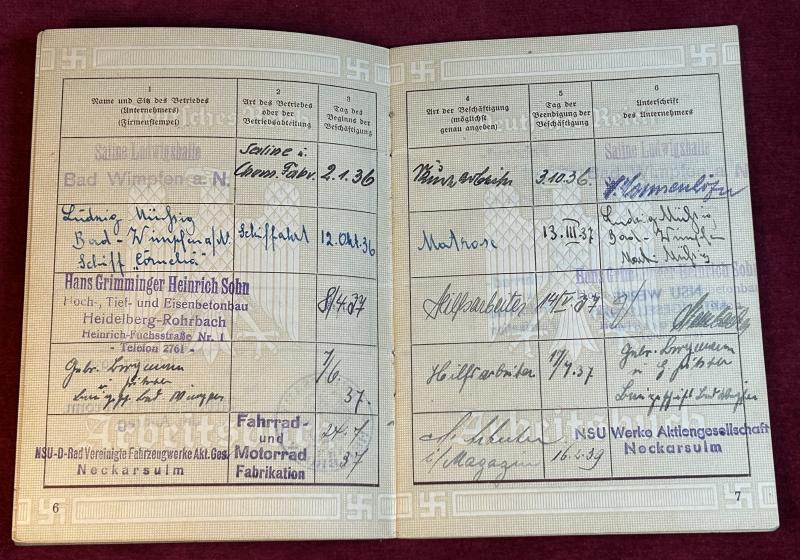 1
Name und Sitz des Betriebes
(Unternehmers)
(Firmenstempel)
2
Art des Betriebes
oder der
Betriebsabteilung
3
Tag des
Beginns der
Beschäftigung
Saline Ludwigshalle
Bad Wimpfen a. N.
Saline u.
Chem. Fabr.
2.1.36
Ludwig Müßig
Bad-Wimpfen a/N.
Schiff "Cornelia"
Schiffahrt
12.Okt.36
Hans Grimminger Heinrich Sohn
Hoch-, Tief- und Eisenbetonbau
Heidelberg-Rohrbach
Heinrich-Fuchsstraße Nr. 1
- Telefon 2761 -
8/4.37
Gebr. Bergmann
Bad Wimpfen
7/6
37.
NSU-D-Rad Vereinigte Fahrzeugwerke Akt. Ges.
Neckarsulm
Fahrrad-
und
Motorrad
Fabrikation
24.7
37
Arbeitsbuch
6
4
Art der Beschäftigung
(möglichst
genau angeben)
5
Tag der
Beendigung der
Beschäftigung
6
Unterschrift
des Unternehmers
Deutsches Reich
3.10.36.
Saline Ludwigshalle
Bad Wimpfen a. N.
Matrose
13.III.37
Ludwig Müßig
Bad-Wimpfen
Hilfsarbeiter
14/V.37
Hans Grimminger Heinrich Sohn
NSU WERKE
Hilfsarbeiter
17/7.37
Gebr. Bergmann
Bad Wimpfen
i/Magazin
16.2.39
NSU Werke Aktiengesellschaft
Neckarsulm
Arbeitsbuch
7